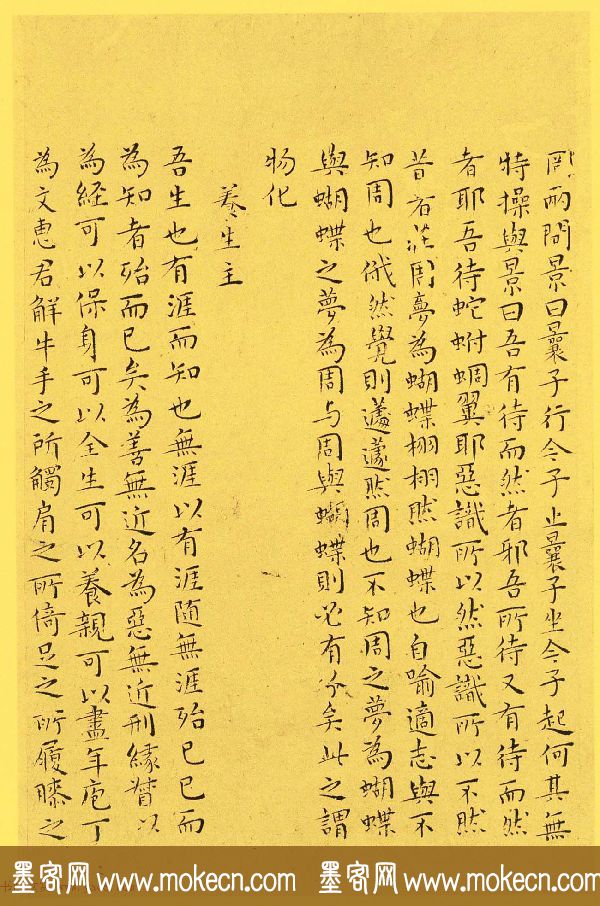 罔兩問景曰曩子行今子止曩子坐今子起何其無
特操與景曰吾有待而然者耶吾所待又有待而然
者耶吾待蛇蚹蜩翼耶惡識所以然惡識所以不然
昔者莊周夢為蝴蝶栩栩然蝴蝶也自喻適志與不
知周也俄然覺則蘧蘧然周也不知周之夢為蝴蝶
與蝴蝶之夢為周与周與蝴蝶則必有分矣此之謂
物化
養生主
吾生也有涯而知也無涯以有涯隨無涯殆已已而
為知者殆而已矣為善無近名為惡無近刑緣督以
為經可以保身可以全生可以養親可以盡年庖丁
為文惠君解牛手之所觸肩之所倚足之所履膝之
墨客网 www.mokecn.com 墨客网 www.mokecn.com